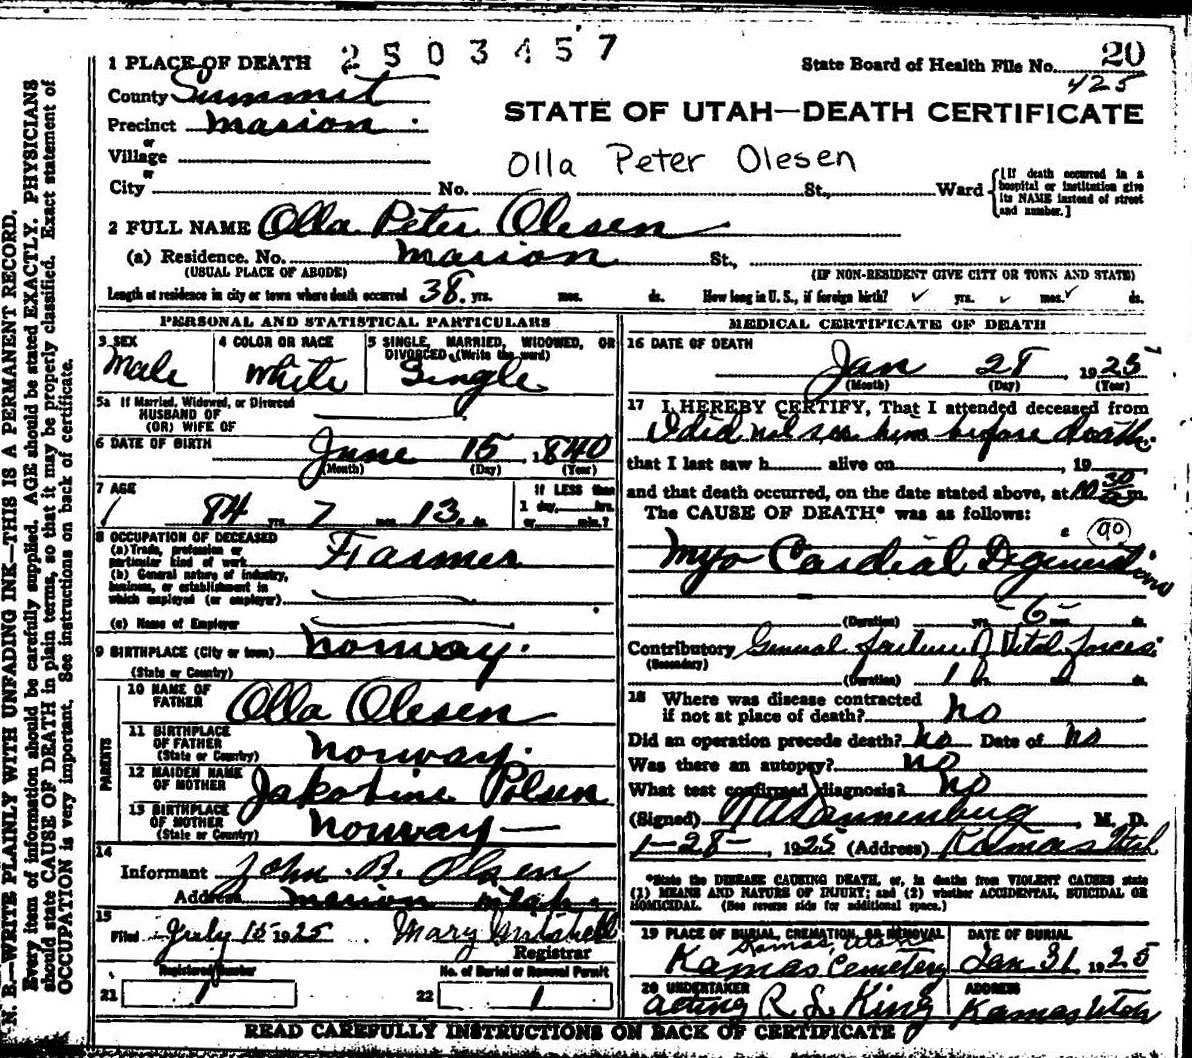 2503457
1 PLACE OF DEATH
State Board of Health File No. 20
425
County Summit
STATE OF UTAH—DEATH CERTIFICATE
Precinct Marion
or
Village
Olla Peter Olesen
or
City No. St., Ward
{[If death occurred in a hospital or institution give its NAME instead of street and number.]
2 FULL NAME Olla Peter Olesen
(a) Residence. No. Marion St.,
(USUAL PLACE OF ABODE) (IF NON-RESIDENT GIVE CITY OR TOWN AND STATE)
Length of residence in city or town where death occurred 38 yrs. mos. ds. How long in U. S., if foreign birth? ✓ yrs. ✓ mos. ✓ ds.
PERSONAL AND STATISTICAL PARTICULARS
3 SEX 4 COLOR OR RACE 5 SINGLE, MARRIED, WIDOWED, OR
DIVORCED (Write the word)
Male White Single
5a If Married, Widowed, or Divorced
HUSBAND OF
(OR) WIFE OF
6 DATE OF BIRTH June 15, 1840
(Month) (Day) (Year)
7 AGE If LESS than
1 day, hrs.
84 yrs. 7 mos. 13 ds. or min.?
8 OCCUPATION OF DECEASED
(a) Trade, profession or
particular kind of work Farmer
(b) General nature of industry,
business, or establishment in
which employed (or employer)
(c) Name of Employer
9 BIRTHPLACE (City or town) Norway.
(State or Country)
PARENTS
10 NAME OF
FATHER Olla Olesen
11 BIRTHPLACE
OF FATHER Norway.
(State or Country)
12 MAIDEN NAME
OF MOTHER Jakobine Polsen
13 BIRTHPLACE
OF MOTHER Norway—
(State or Country)
14
Informant John B. Olsen
Address Marion Utah
15
Filed July 15 1925 Mary
Registrar
Registered Number No. of Burial or Removal Permit
21 1 22 1
MEDICAL CERTIFICATE OF DEATH
16 DATE OF DEATH
Jan 28 1925
(Month) (Day) (Year)
17 I HEREBY CERTIFY, That I attended deceased from
I did not see him before death.
that I last saw h alive on , 19
and that death occurred, on the date stated above, at 10 30 a m.
The CAUSE OF DEATH* was as follows:
90
Myo Cardial Degenerations
(Duration) yrs. 6 mos. ds.
Contributory General failure of Vital forces
(Secondary)
(Duration)
18 Where was disease contracted
if not at place of death? No
Did an operation precede death? No Date of No
Was there an autopsy? No
What test confirmed diagnosis? No
(Signed) Dannenburg, M. D.
1-28-, 1925 (Address) Kamas Utah
*State the DISEASE CAUSING DEATH, or, in deaths from VIOLENT CAUSES state
(1) MEANS AND NATURE OF INJURY; and (2) whether ACCIDENTAL, SUICIDAL OR
HOMICIDAL. (See reverse side for additional space.)
19 PLACE OF BURIAL, CREMATION, OR REMOVAL DATE OF BURIAL
Kamas, Utah
Kamas Cemetery Jan 31 1925
20 UNDERTAKER ADDRESS
acting R. L. King Kamas Utah
READ CAREFULLY INSTRUCTIONS ON BACK OF CERTIFICATE
N. B.—WRITE PLAINLY WITH UNFADING INK—THIS IS A PERMANENT RECORD.
Every item of information should be carefully supplied. AGE should be stated EXACTLY. PHYSICIANS
should state CAUSE OF DEATH in plain terms, so that it may be properly classified. Exact statement of
OCCUPATION is very important. See instructions on back of certificate.